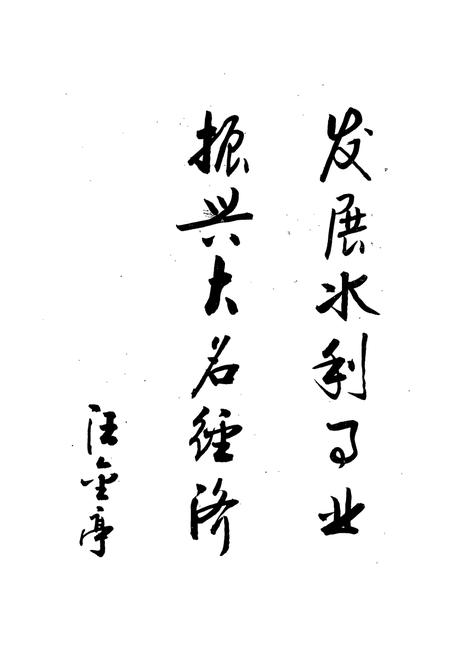 发展水利事业
振兴大名经济
汪金亭